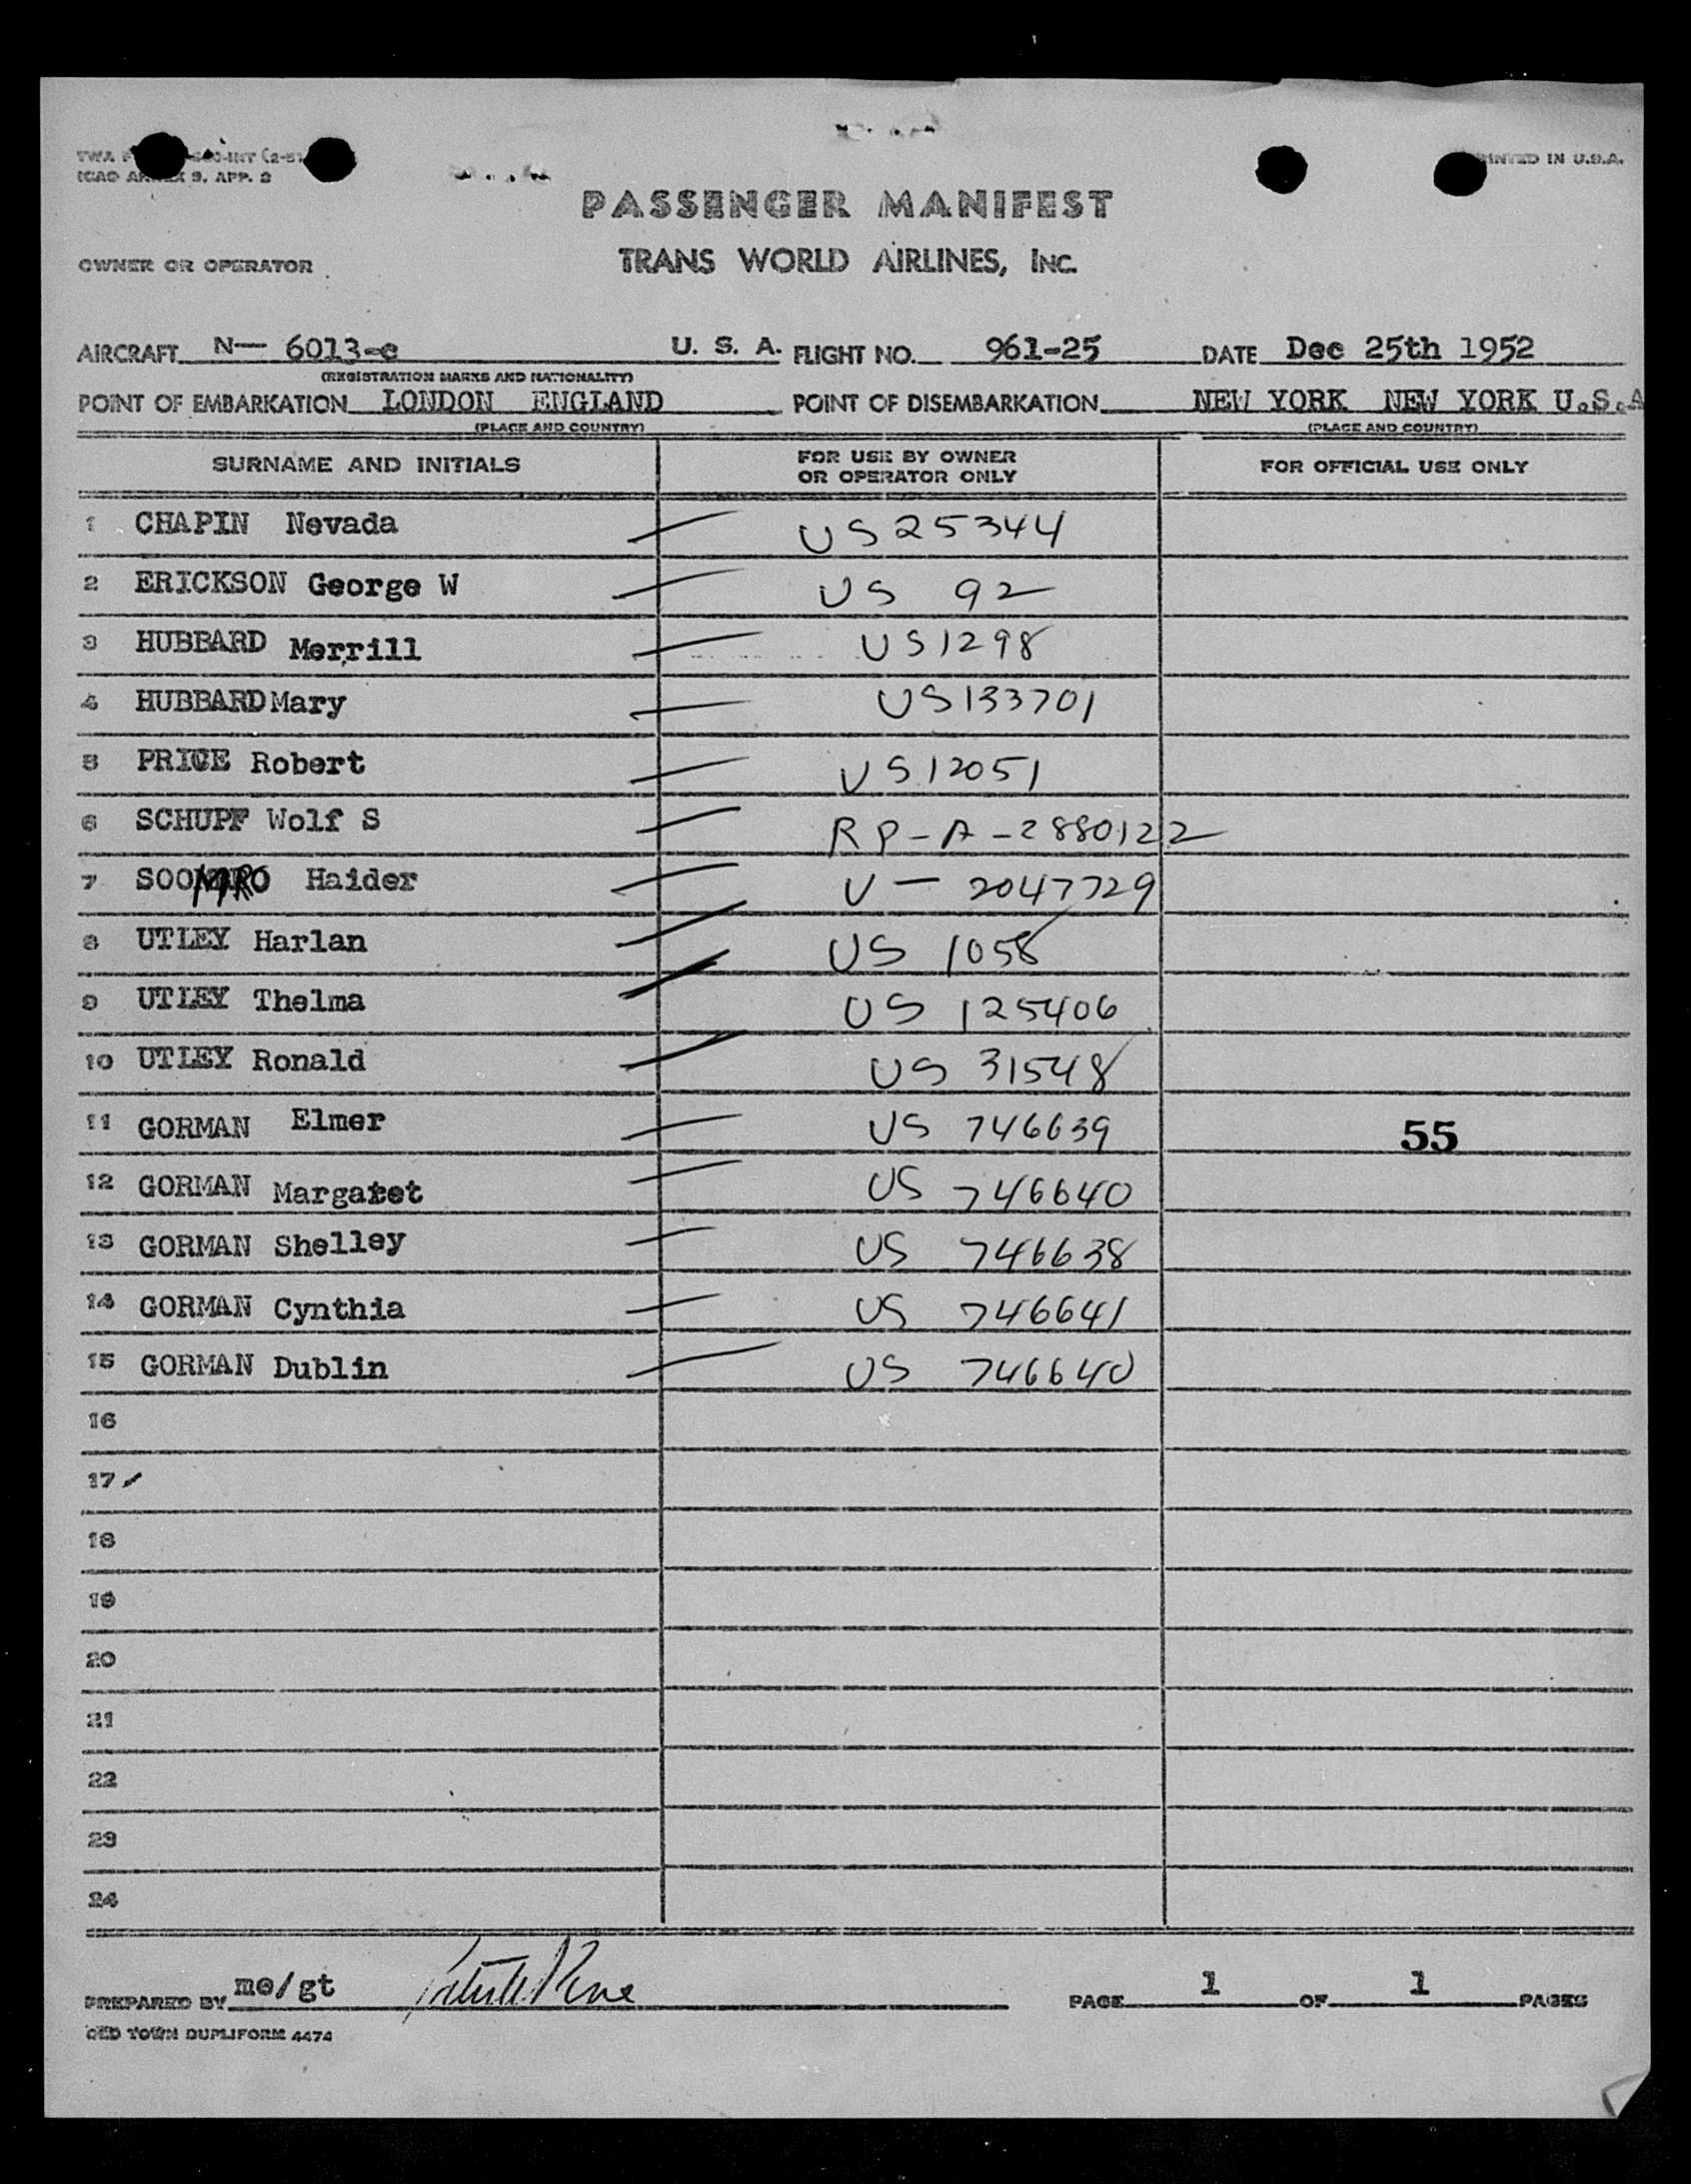 TWA F -INT (2-5
ICAO ANNEX 9, APP. 2
PRINTED IN U.S.A.
PASSENGER MANIFEST
OWNER OR OPERATOR TRANS WORLD AIRLINES, INC.
AIRCRAFT N— 6013-c U. S. A. FLIGHT NO. 961-25 DATE Dec 25th 1952
(REGISTRATION MARKS AND NATIONALITY)
POINT OF EMBARKATION LONDON ENGLAND POINT OF DISEMBARKATION NEW YORK NEW YORK U.S.A
(PLACE AND COUNTRY) (PLACE AND COUNTRY)
SURNAME AND INITIALS FOR USE BY OWNER OR OPERATOR ONLY FOR OFFICIAL USE ONLY
1 CHAPIN Nevada US 25344
2 ERICKSON George W US 92
3 HUBBARD Merrill US 1298
4 HUBBARD Mary US 133701
5 PRICE Robert US 12051
6 SCHUPF Wolf S RP-A-2880122
7 SOOMRO Haider V - 2047729
8 UTLEY Harlan US 1058
9 UTLEY Thelma US 125406
10 UTLEY Ronald US 31548
11 GORMAN Elmer US 746639 55
12 GORMAN Margaret US 746640
13 GORMAN Shelley US 746638
14 GORMAN Cynthia US 746641
15 GORMAN Dublin US 746640
16
17
18
19
20
21
22
23
24
PREPARED BY me/gt PAGE 1 OF 1 PAGES
OLD TOWN DUPLIFORM 4474